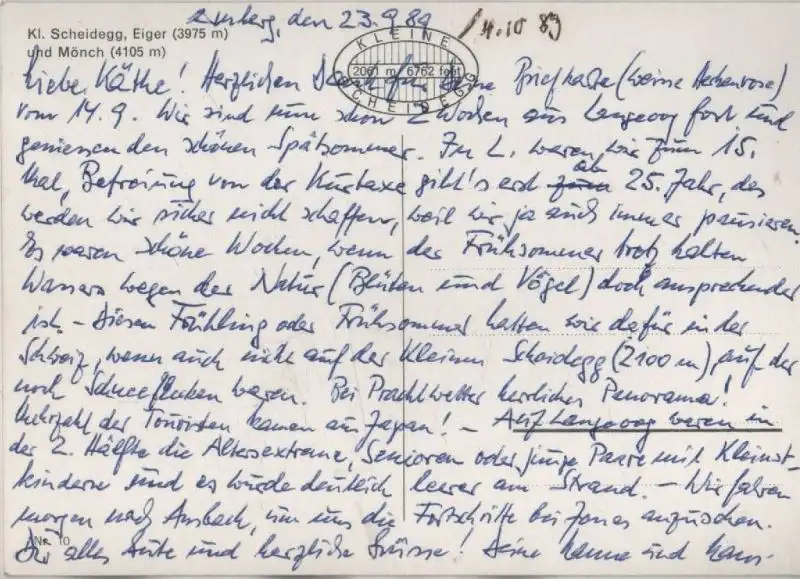 Kl. Scheidegg, Eiger (3975 m)
und Mönch (4105 m)
den 23.9.89
14.10 89
KLEINE
2061 m 6762 feet
SCHEIDEGG
Liebe Käthe! Herzlichen Dank für Deine Briefkarte (weisse Heckenrose)
vom 14.9. Wir sind nun schon 2 Wochen aus Langeoog fort und
geniessen den schönen Spätsommer. In L. waren wir zum 15.
Mal, Befreiung von der Kurtaxe gibt's erst ab 25. Jahr, das
werden wir sicher nicht schaffen, weil wir ja auch immer pausieren.
Es waren schöne Wochen, wenn der Frühsommer trotz kalten
Wassers wegen der Natur (Blüten und Vögel) doch ansprechender
ist. - Diesen Frühling oder Frühsommer hatten wir dafür in der
Schweiz, wenn auch nicht auf der Kleinen Scheidegg (2100 m), auf der
noch Schneeflecken waren. Bei Prachtwetter herrliches Panorama!
Mehrzahl der Touristen kamen aus Japan! - Auf Langeoog waren in
der 2. Hälfte die Altersextreme, Senioren oder junge Paare mit Kleinst-
kindern und es wurde deutlich leerer am Strand. - Wir fahren
morgen nach Ansbach, um uns die Fortschritte bei Jonas anzuschauen.
Nr. 10
Dir alles Gute und herzliche Grüsse! Deine Hanne und Hans.